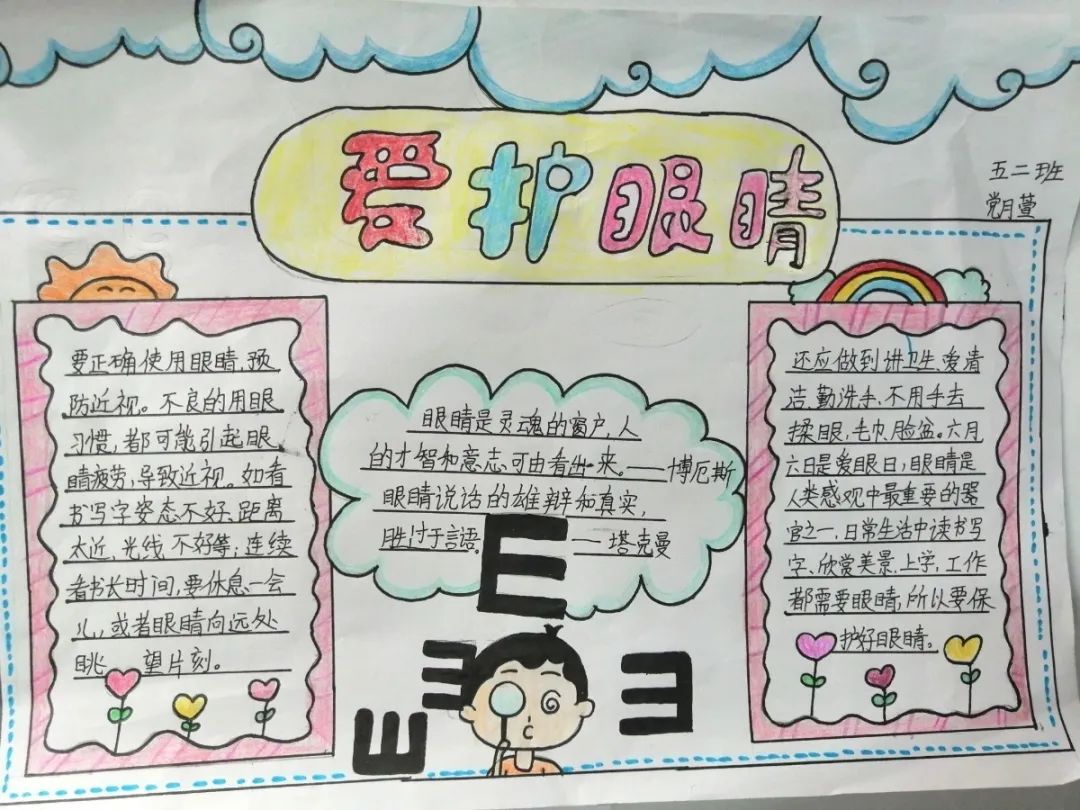 爱护眼睛
五二班
党月萱
要正确使用眼睛,预
防近视。不良的用眼
习惯,都可能引起眼
睛疲劳,导致近视。如看
书写字姿态不好、距离
太近,光线不好等,连续
看书长时间,要休息一会
儿,或者眼睛向远处
眺望片刻。
眼睛是灵魂的窗户,人
的才智和意志,可由看出来。——博厄斯
眼睛说话的雄辩和真实,
胜过于言語。——塔克曼
E
E
E
E
还应做到讲卫生、爱清
洁,勤洗手、不用手去
揉眼,毛巾脸盆。六月
六日是爱眼日,眼睛是
人类感观中最重要的器
官之一,日常生活中读书写
字、欣赏美景、上学,工作
都需要眼睛,所以要保
护好眼睛。